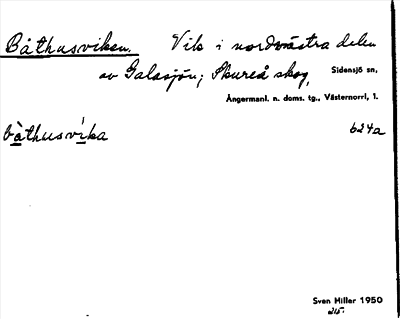 Båthusviken. Vik i nordvästra delen
av Galasjön; Skureå skog, Sidensjö sn,
Ångermanl. n. doms. tg., Västernorrl, l.
båthusvika 624a
Sven Miller 1950
215.